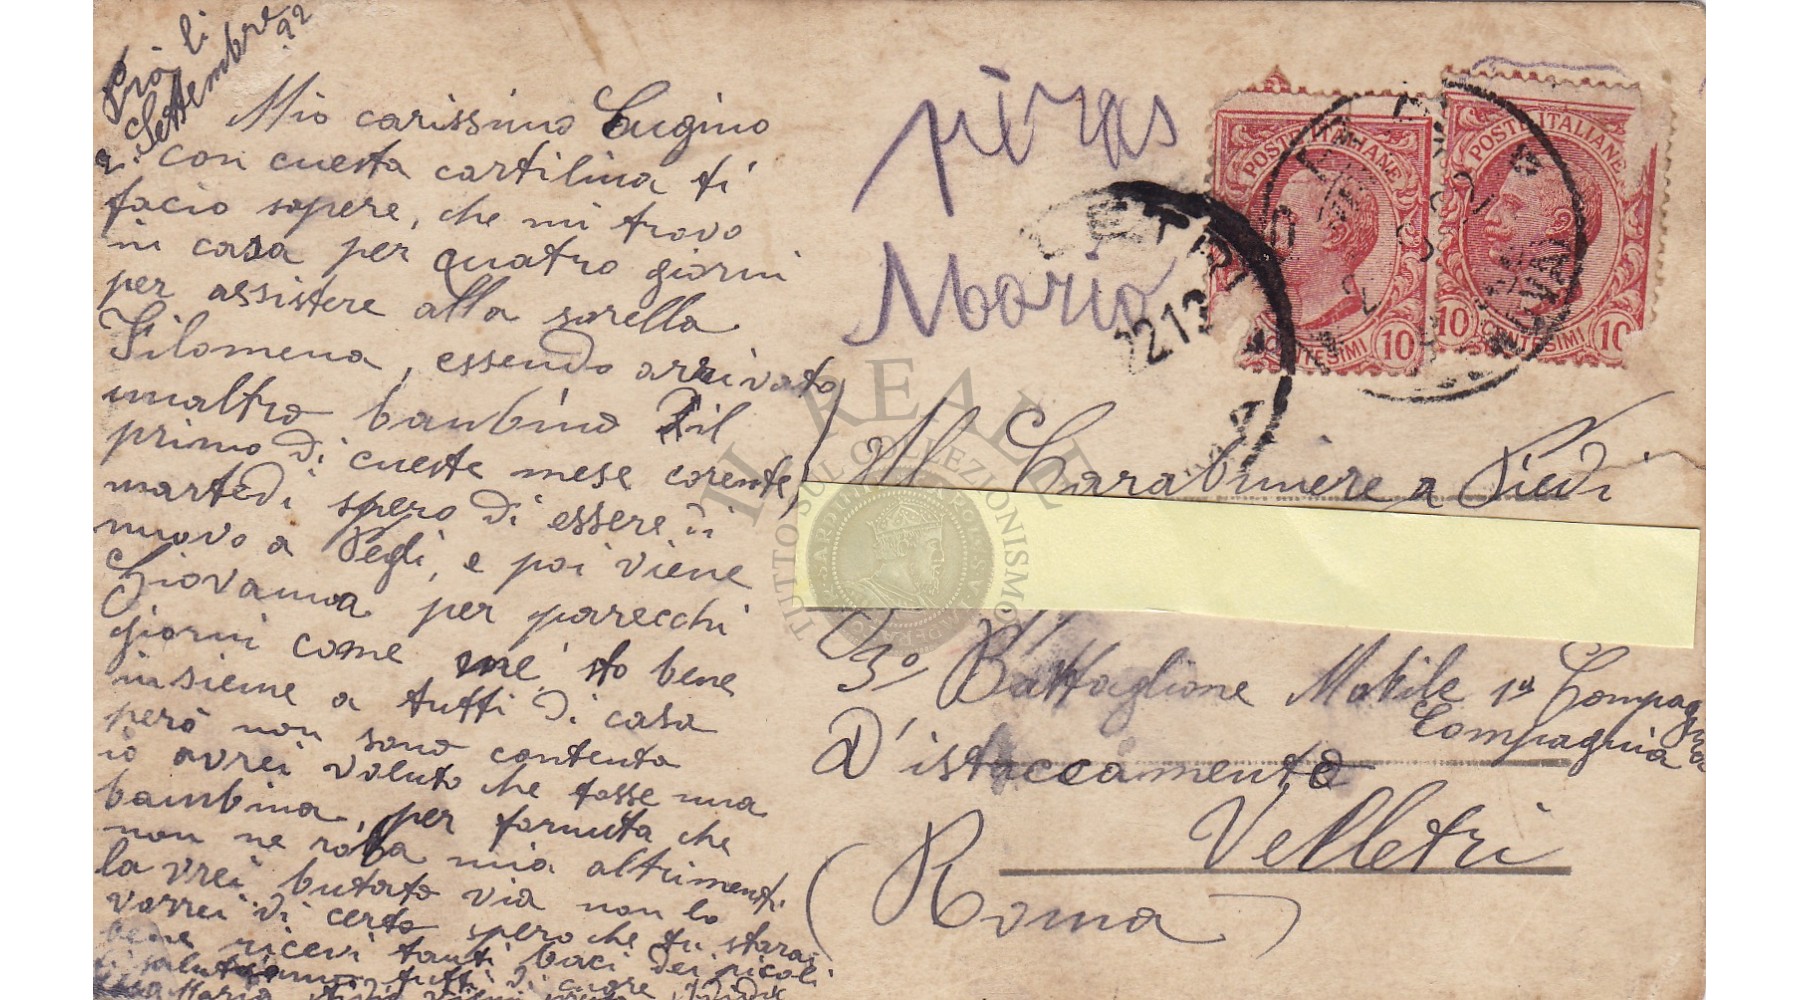 Prà li
2. Settembre 22
Mio carissimo Gugino
con cuesta cartilina ti
facio sapere, che mi trovo
in casa per quatro giorni
per assistere alla sorella
Filomena, essendo arrivato
unaltro bambino il
primo di cueste mese corente,
martedi spero di essere di
nuovo a Pegli, e poi viene
Giovanna per parecchi
giorni come me sto bene
insieme a tutti di casa
però non sono contenta
io avrei voluto che fosse una
bambina, per fornuta che
non ne roba mia altrimenti
la vrei butato via non lo
vorrei di certo spero che tu starai
bene ricevi tanti baci dei picoli
ti salutiamo tutti di cuore
Maria
pieras
Maria
POSTE ITALIANE
CENTESIMI 10
POSTE ITALIANE
10 CENTESIMI 10
LETRI
22.12
Al Carabiniere a Piedi
3º Battaglione Mobile 1ª Compagnia
Compagnia
D'istaccamento
Velletri
(Roma)
IL REALE
TUTTO SUL COLLEZIONISMO